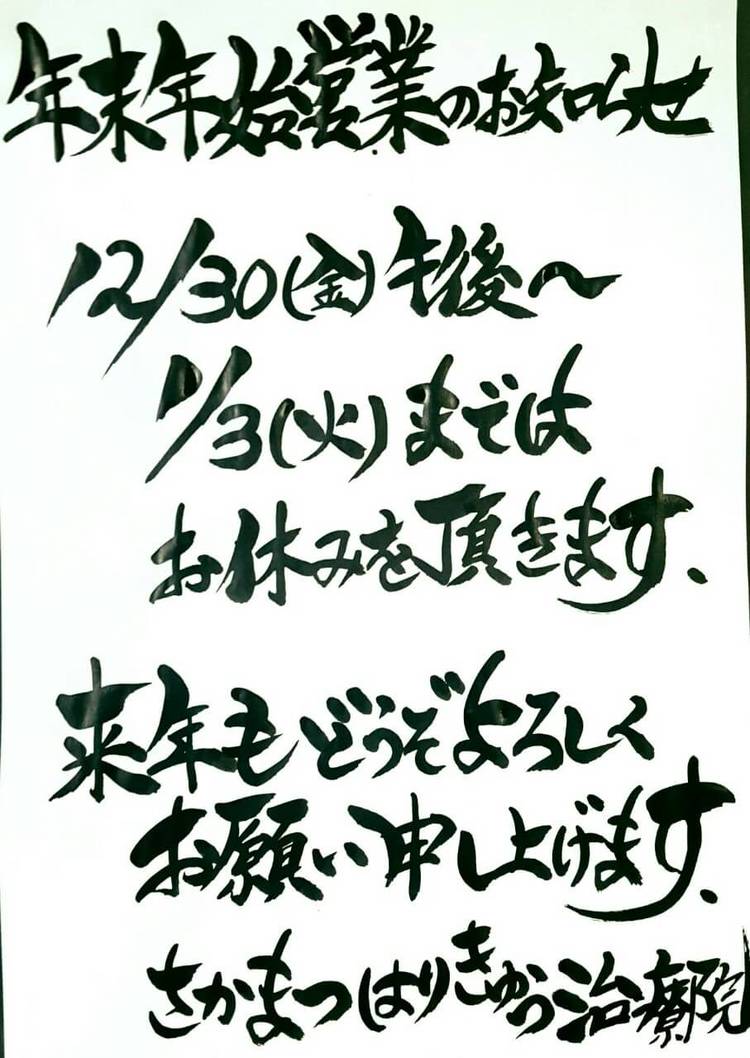 年末年始営業のお知らせ
12/30(金)午後〜
1/3(火)までは
お休みを頂きます.
来年もどうぞよろしく
お願い申し上げます.
さかまつはりきゅう治療院